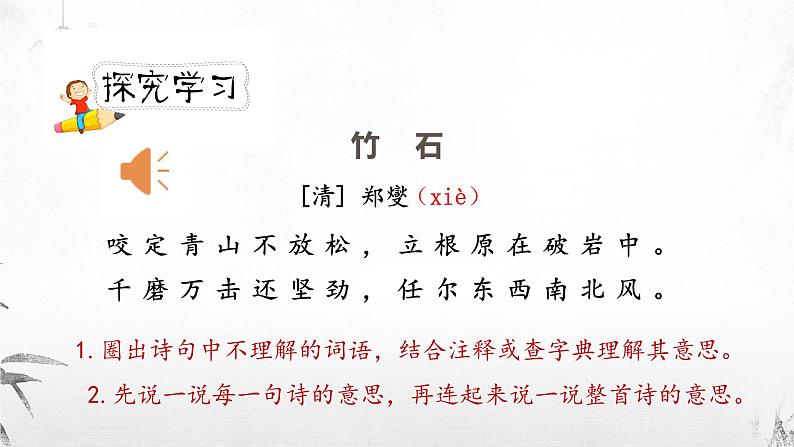 探究学习
竹 石
[清] 郑燮(xiè)
咬定青山不放松,立根原在破岩中。
千磨万击还坚劲,任尔东西南北风。
1.圈出诗句中不理解的词语,结合注释或查字典理解其意思。
2.先说一说每一句诗的意思,再连起来说一说整首诗的意思。